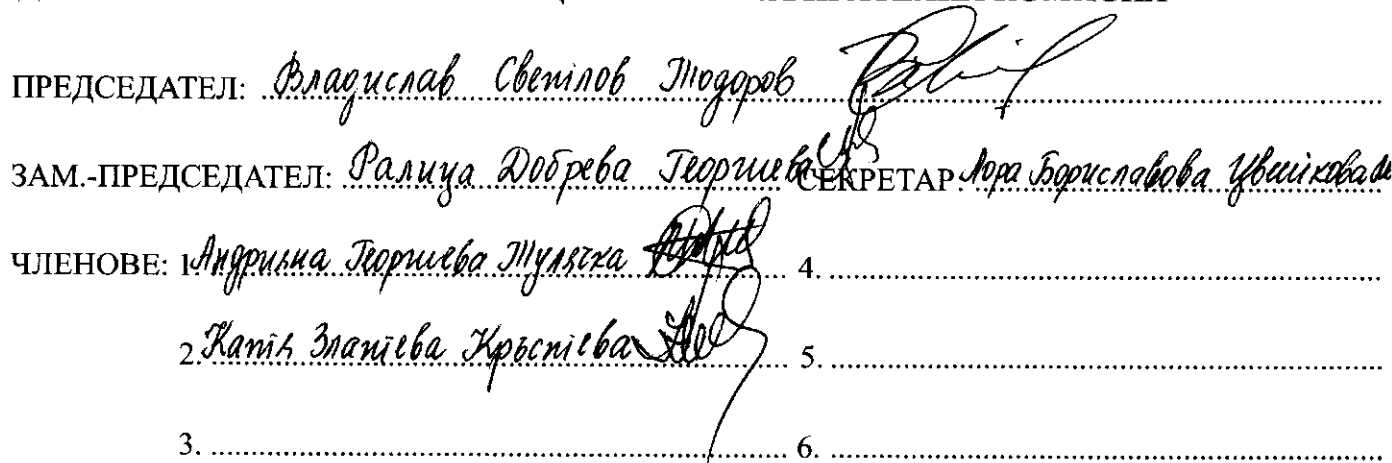 ПРЕДСЕДАТЕЛ: Владислав Светлов Тодоров
ЗАМ.-ПРЕДСЕДАТЕЛ: Ралица Добрева Георгиева СЕКРЕТАР: Лора Бориславова Цвейкова
ЧЛЕНОВЕ: 1. Георгиева 4.
2. Катя Златева Кръстева 5.
3. 6.